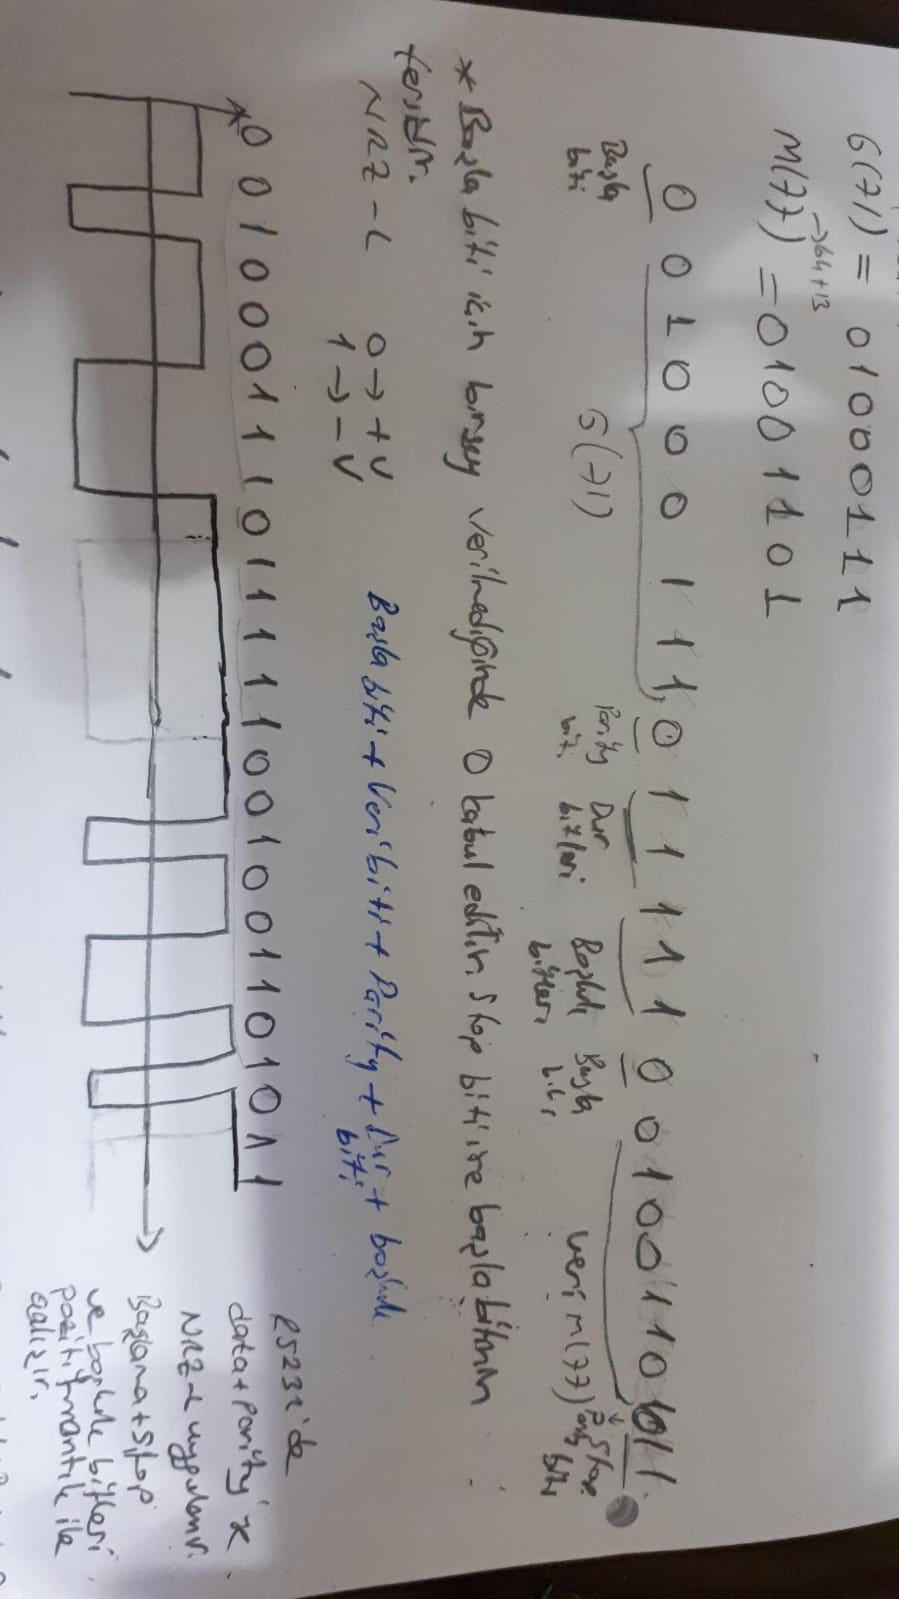 G(71) = 01000111
→64+13
M(77) = 01001101
0 01000111,0 11 11 0 01001101011
Başla biti
G(71)
Parity biti
Dur bitleri
Boşluk bitleri
Başla biti
veri m(77)
Parity
Stop biti
* Başla biti için birşey verilmediğinde 0 kabul edilin. Stop biti ise başla bitinin
tersidir.
NRZ-L 0→+V
1→-V
Başla biti + Veri biti + Parity + Dur biti + boşluk
0 01000111 0 11 11 0 01001101 0 11
RS232'de
data+parity'x
NRZ-L uygulanır.
Başlama+stop
ve boşluk bitleri
pozitif mantık ile
çalışır.